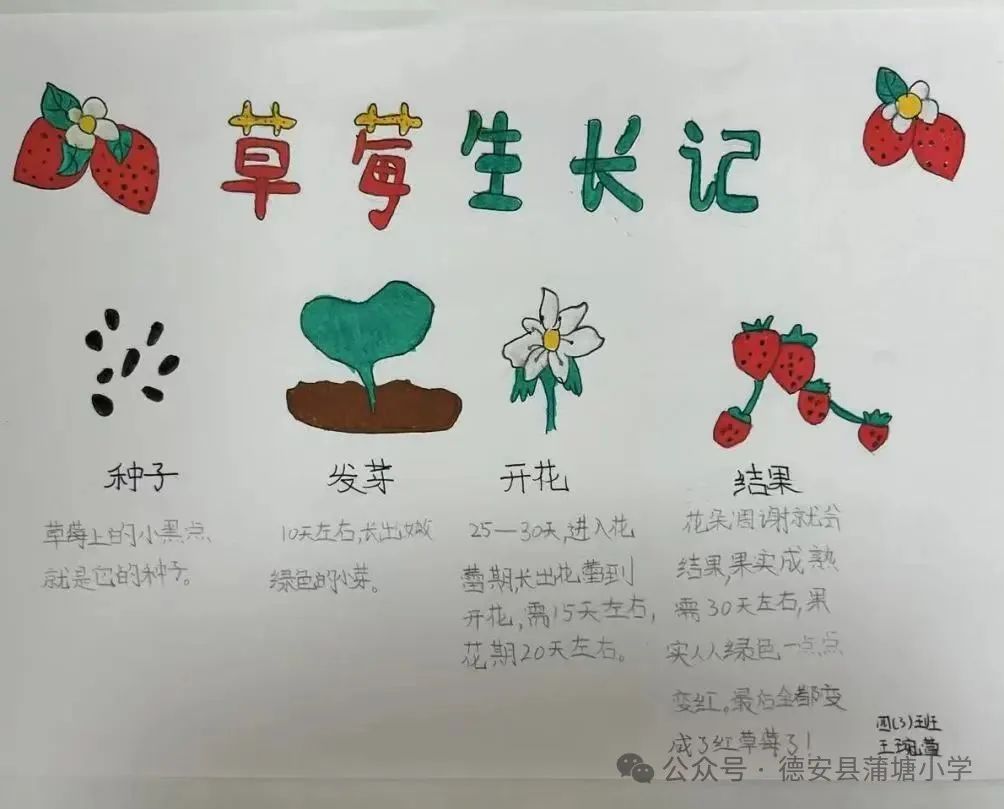 草莓生长记
种子
草莓上的小黑点
就是它的种子。
发芽
10天左右,长出嫩
绿色的小芽。
开花
25—30天,进入花
蕾期,长出花蕾到
开花,需15天左右,
花期20天左右。
结果
花朵凋谢就会
结果,果实成熟
需30天左右,果
实从绿色一点点
变红。最后全都变
成了红草莓了!
四(3)班
王琬萱
公众号·德安县蒲塘小学